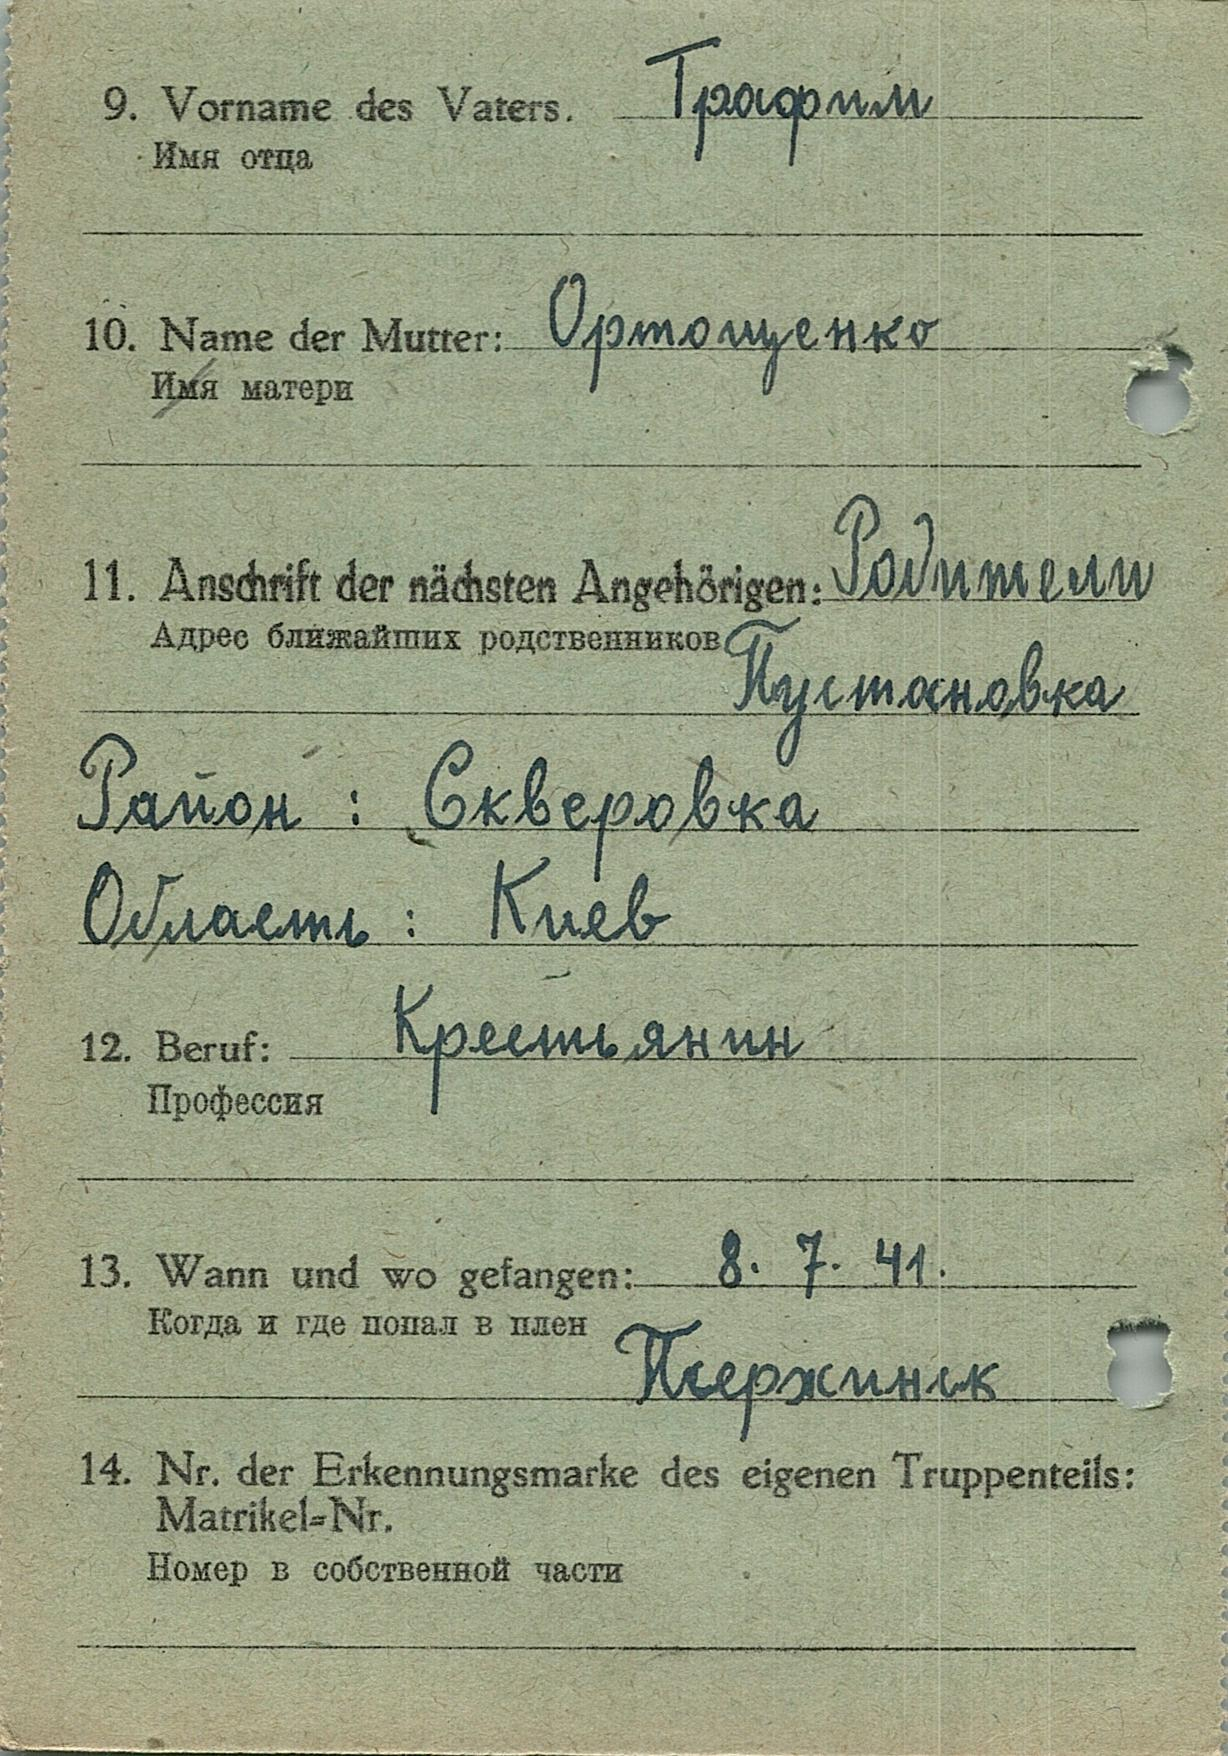 9. Vorname des Vaters. Трафим
Имя отца
10. Name der Mutter: Ортощенко
Имя матери
11. Anschrift der nächsten Angehörigen: Родители
Адрес ближайших родственников Пустановка
Район : Скверовка
Область : Киев
12. Beruf: Крестьянин
Профессия
13. Wann und wo gefangen: 8. 7. 41.
Когда и где попал в плен
14. Nr. der Erkennungsmarke des eigenen Truppenteils:
Matrikel=Nr.
Номер в собственной части